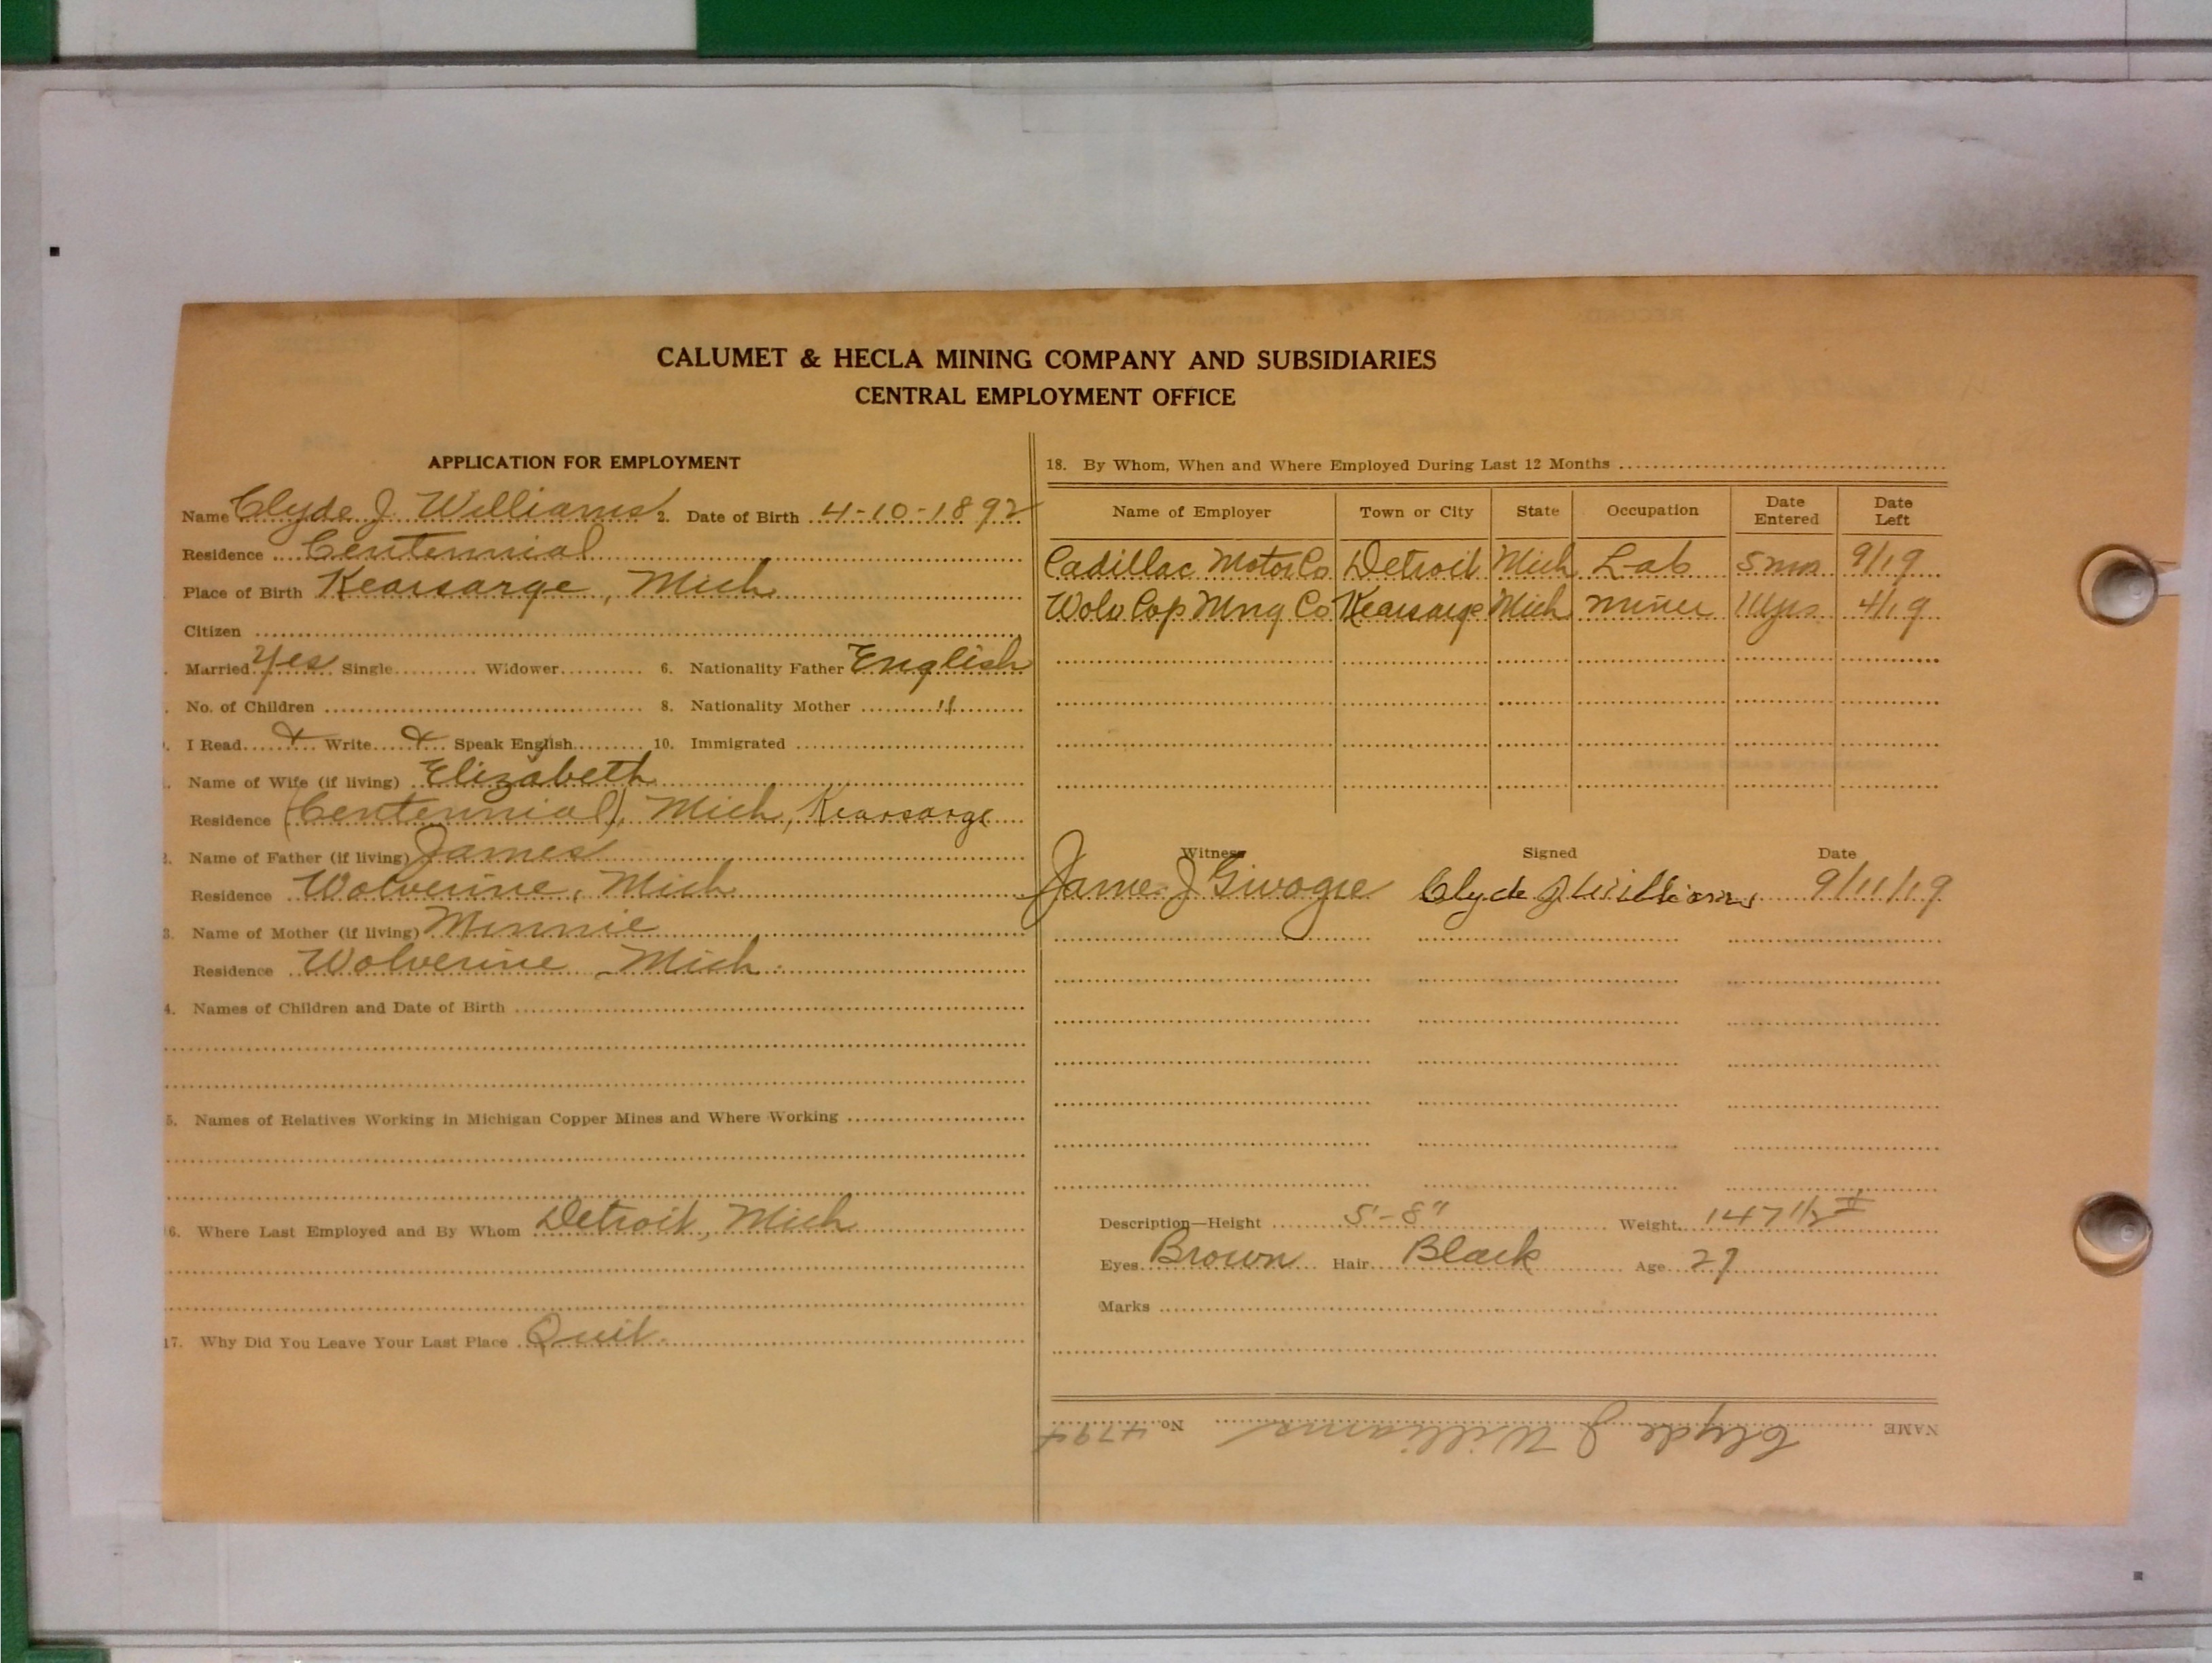 CALUMET & HECLA MINING COMPANY AND SUBSIDIARIES
CENTRAL EMPLOYMENT OFFICE
APPLICATION FOR EMPLOYMENT
Name Clyde J. Williams 2. Date of Birth 4-10-1892
Residence Centennial
Place of Birth Kearsarge, Mich
Citizen
Married Yes Single Widower 6. Nationality Father English
No. of Children 8. Nationality Mother "
I Read + Write + Speak English 10. Immigrated
Name of Wife (if living) Elizabeth
Residence (Centennial), Mich, Kearsarge
Name of Father (if living) James
Residence Wolverine, Mich
3. Name of Mother (if living) Minnie
Residence Wolverine Mich.
4. Names of Children and Date of Birth
5. Names of Relatives Working in Michigan Copper Mines and Where Working
16. Where Last Employed and By Whom Detroit, Mich
17. Why Did You Leave Your Last Place Quit.
18. By Whom, When and Where Employed During Last 12 Months
Name of Employer Town or City State Occupation Date Entered Date Left
Cadillac Motor Co Detroit Mich Lab 5 mos 9/19
Wolv Cop Mng Co Kearsarge Mich miner yrs 4/19
Witness Signed Date
James J Clyde J Williams 9/11/19
Description—Height 5'-8" Weight 147 1/2
Eyes Brown Hair Black Age 27
Marks
NAME Clyde J Williams No. 4794